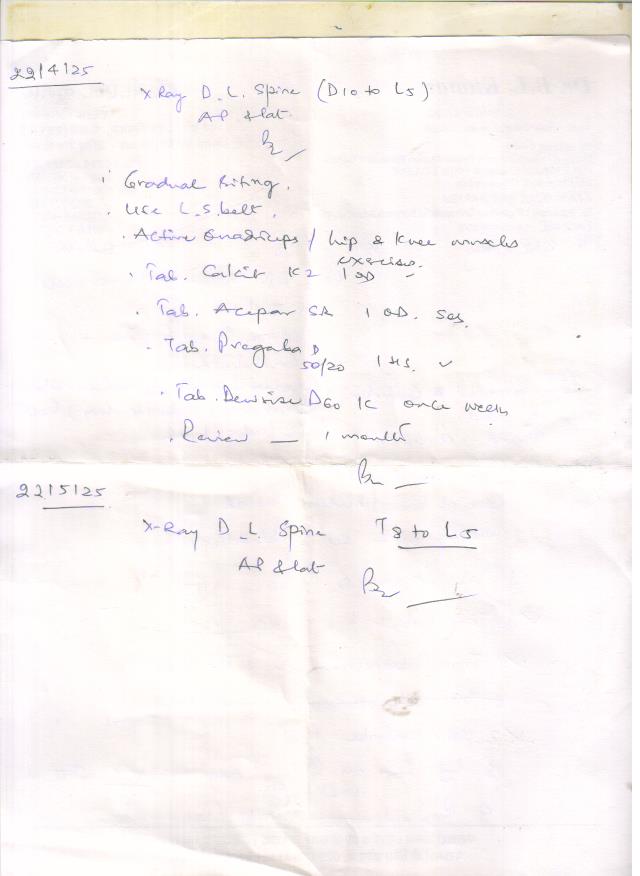 22/4/25
X Ray D.L. Spine (D10 to L5)
AP & lat.
Gradual Sitting.
Use L.S. belt.
Active Quadriceps / hip & knee muscles
exercises.
Tab. Calcit K2 1 OD
Tab. Acepar SR 1 OD. SOS
Tab. Pregaba D
50/20 1 HS.
Tab. Dewrise D 60 K once week
Review — 1 month
22/5/25
X-Ray D.L. Spine T8 to L5
AP & lat